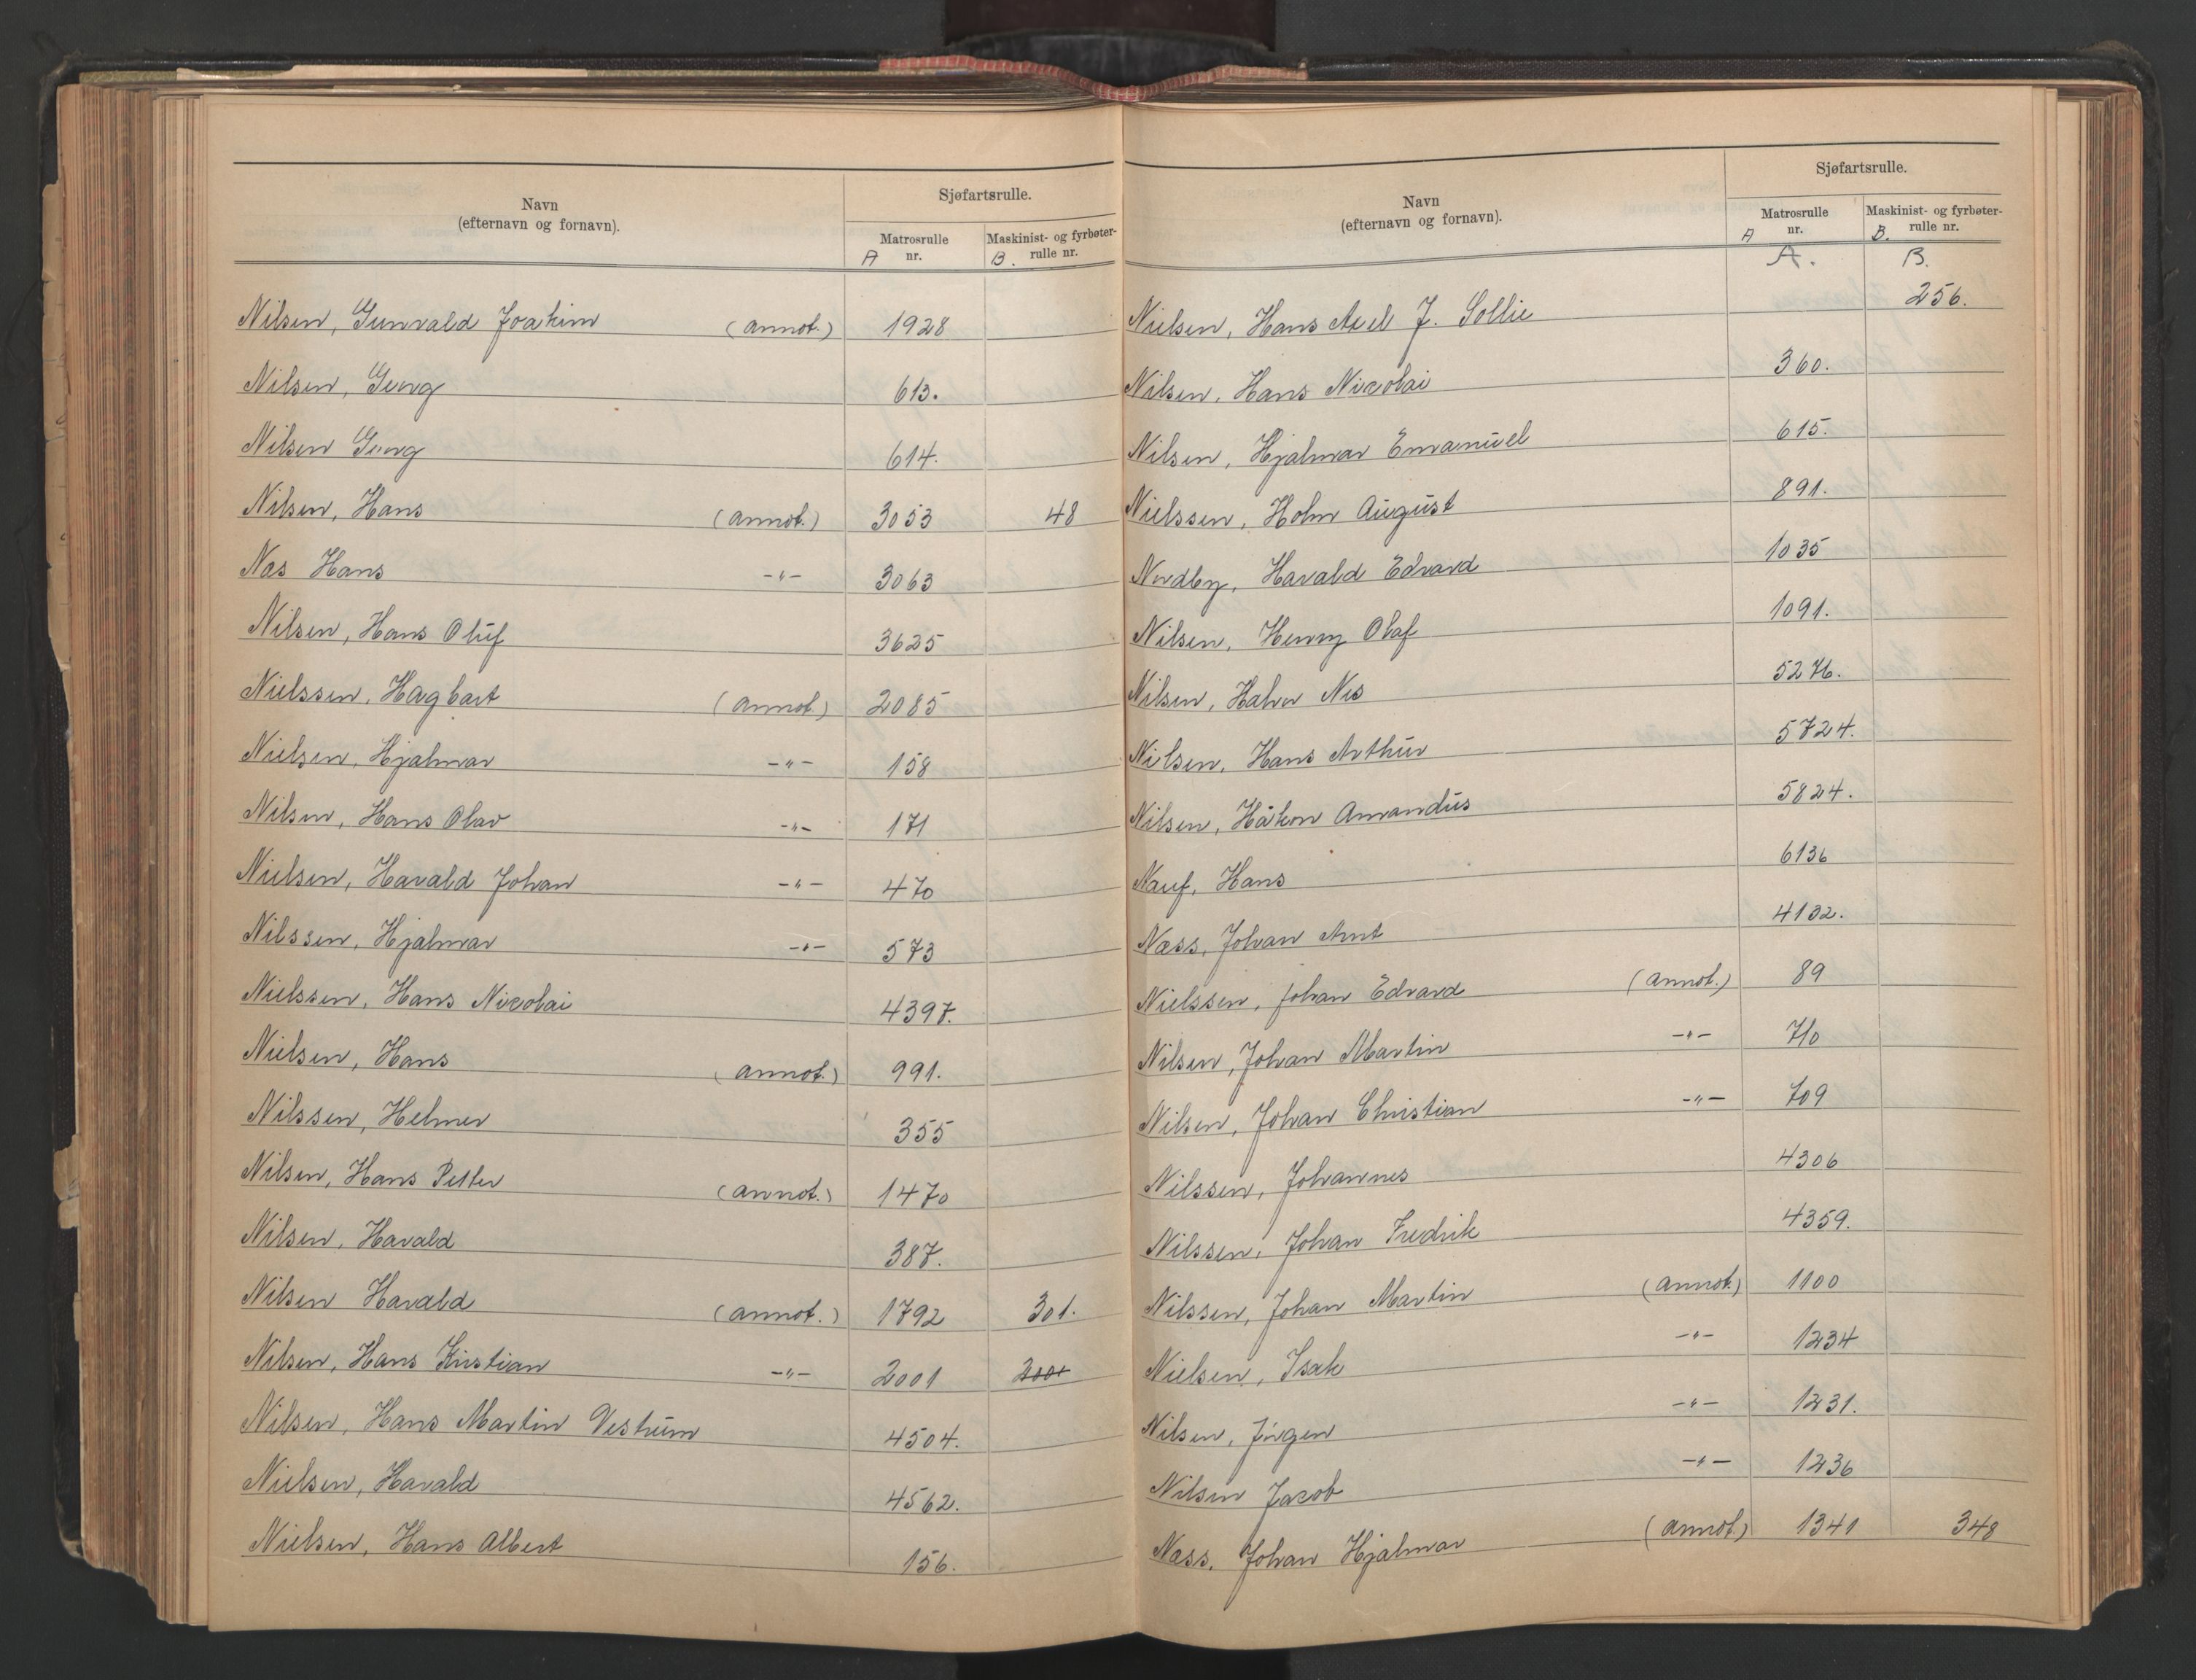 Navn
(efternavn og fornavn).
Sjøfartsrulle.
Matrosrulle
nr.
A
Maskinist- og fyrbøter-
rulle nr.
B.
Nilsen, Gunvald Joakim (annot.) 1928
Nilsen, Georg 613.
Nilsen Georg 614.
Nilsen, Hans (annot.) 3053 48
Næs Hans -"- 3063
Nilsen, Hans Oluf 3625
Nielssen, Hagbart (annot.) 2085
Nielsen, Hjalmar -"- 158
Nilsen, Hans Olav -"- 171
Nielsen, Harald Johan -"- 470
Nilssen, Hjalmar -"- 573
Nielssen, Hans Nicolai 4397.
Nielsen, Hans (annot.) 991.
Nilssen, Helmer 355
Nilsen, Hans Petter (annot.) 1470
Nilsen, Harald 387.
Nilsen Harald (annot.) 1792 301.
Nilsen, Hans Kristian -"- 2001 2001
Nilsen, Hans Martin Vestrum 4504.
Nielsen, Harald 4562.
Nielsen, Hans Albert 156.
Navn
(efternavn og fornavn).
Sjøfartsrulle.
Matrosrulle
nr.
A
Maskinist- og fyrbøter-
rulle nr.
B.
A. B.
Nielsen, Hans Axel J. Sollie 256.
Nilsen, Hans Nicolai 360.
Nilsen, Hjalmar Emanuel 615.
Nielssen, Holm August 891.
Nordby, Harald Edvard 1035
Nilsen, Henry Olaf 1091.
Nilsen, Halvor Nis 5276.
Nielsen, Hans Arthur 5724.
Nilsen, Håkon Amandus 5824.
Nauf, Hans 6136
Næss, Johan Arnt 4132.
Nielssen, Johan Edvard (annot.) 89
Nilsen, Johan Martin -"- 710
Nilsen, Johan Christian -"- 709
Nilssen, Johannes 4306
Nilssen, Johan Fredrik 4359.
Nilssen, Johan Martin (annot.) 1100
Nielsen, Isak -"- 1234
Nilsen, Jörgen -"- 1231.
Nilsen Jacob -"- 1236
Næss, Johan Hjalmar (annot) 1341 348